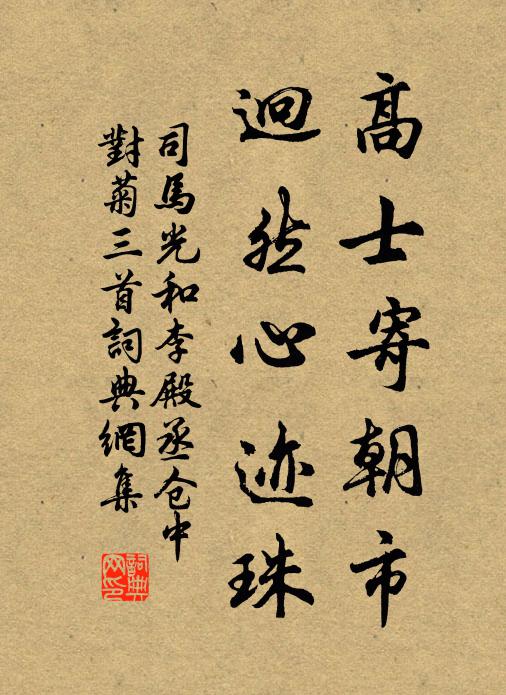 高士寄朝市
迥然心迹珠
司馬光和李殿丞仓中
對菊三首詞典網集
詞典
网印